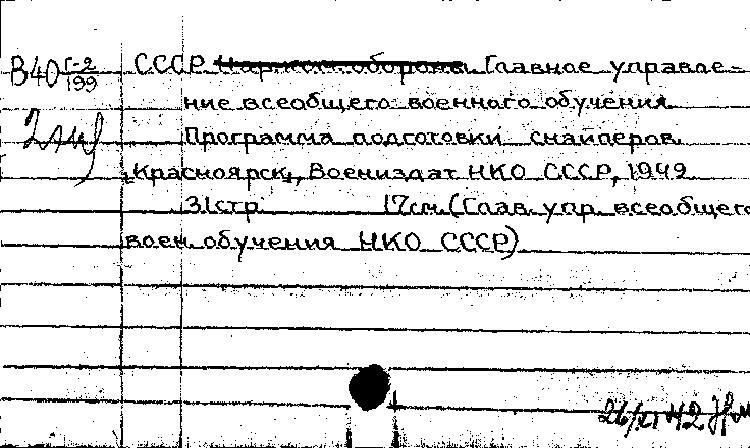 В40 Г-2/199 СССР Наркомат обороны. Главное управле-
ние всеобщего военного обучения.
Программа подготовки снайперов.
"Красноярск", Воениздат НКО СССР, 1949
31стр. 17см. (Глав. упр. всеобщего
воен. обучения НКО СССР)